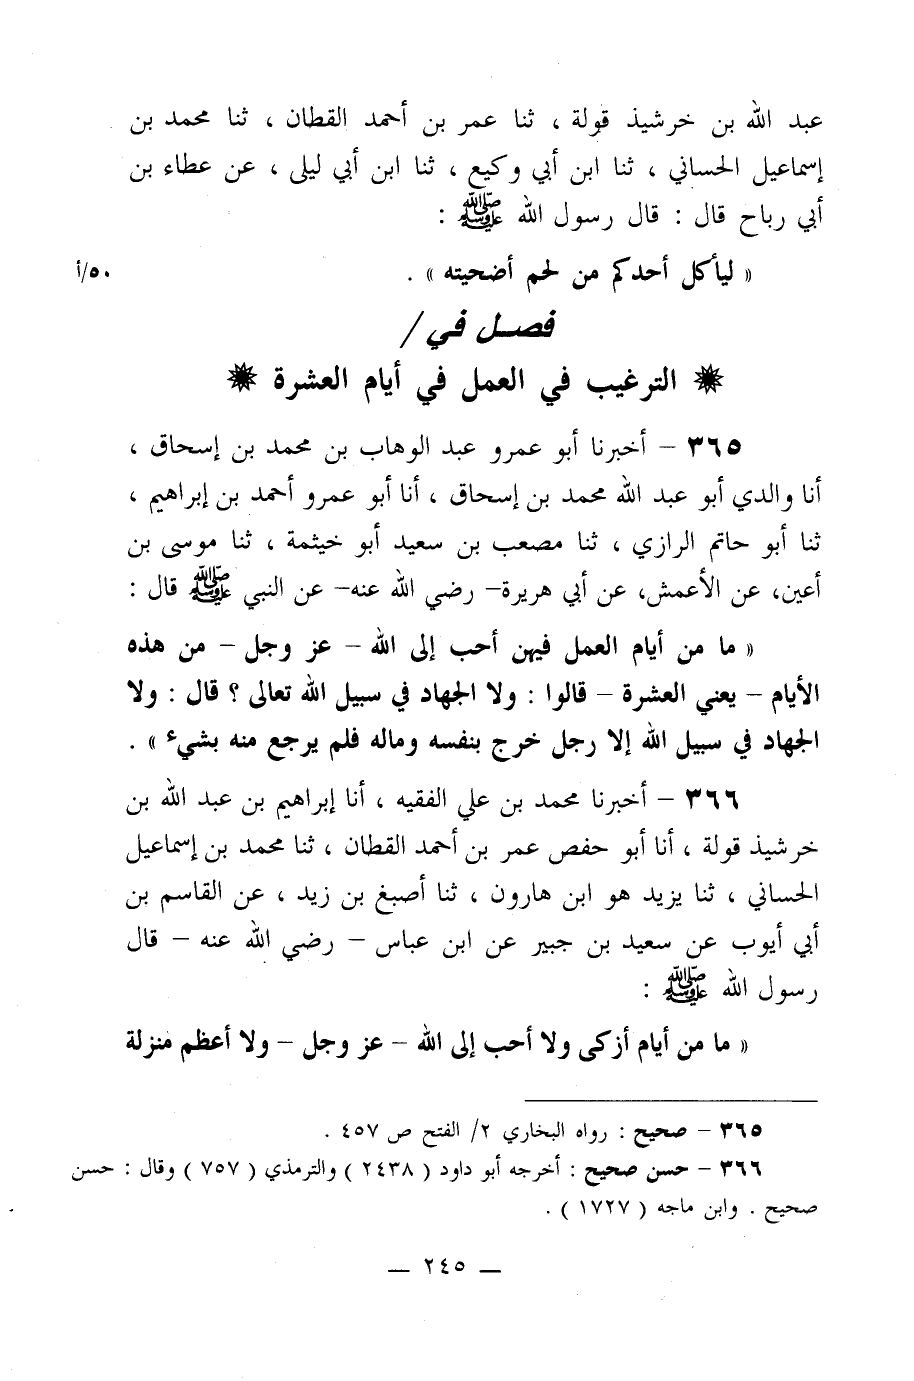 عبد الله بن خرشيذ قولة ، ثنا عمر بن أحمد القطان ، ثنا محمد بن
إسماعيل الحساني ، ثنا ابن أبي وكيع ، ثنا ابن أبي ليلى ، عن عطاء بن
أبي رباح قال : قال رسول الله ﷺ :
« ليأكل أحدكم من لحم أضحيته » .
٥٠/أ
فصل في /
الترغيب في العمل في أيام العشرة
٣٦٥ – أخبرنا أبو عمرو عبد الوهاب بن محمد بن إسحاق ،
أنا والدي أبو عبد الله محمد بن إسحاق ، أنا أبو عمرو أحمد بن إبراهيم ،
ثنا أبو حاتم الرازي ، ثنا مصعب بن سعيد أبو خيثمة ، ثنا موسى بن
أعين، عن الأعمش، عن أبي هريرة– رضي الله عنه– عن النبي ﷺ قال :
« ما من أيام العمل فيهن أحب إلى الله – عز وجل – من هذه
الأيام – يعني العشرة – قالوا : ولا الجهاد في سبيل الله تعالى ؟ قال : ولا
الجهاد في سبيل الله إلا رجل خرج بنفسه وماله فلم يرجع منه بشيء » .
٣٦٦ – أخبرنا محمد بن علي الفقيه ، أنا إبراهيم بن عبد الله بن
خرشيذ قولة ، أنا أبو حفص عمر بن أحمد القطان ، ثنا محمد بن إسماعيل
الحساني ، ثنا يزيد هو ابن هارون ، ثنا أصبغ بن زيد ، عن القاسم بن
أبي أيوب عن سعيد بن جبير عن ابن عباس – رضي الله عنه – قال
رسول الله ﷺ :
« ما من أيام أزكى ولا أحب إلى الله – عز وجل – ولا أعظم منزلة
٣٦٥ – صحيح : رواه البخاري ٢/ الفتح ص ٤٥٧ .
٣٦٦ – حسن صحيح : أخرجه أبو داود ( ٢٤٣٨ ) والترمذي ( ٧٥٧ ) وقال : حسن
صحيح . وابن ماجه ( ١٧٢٧ ) .
— ٢٤٥ —